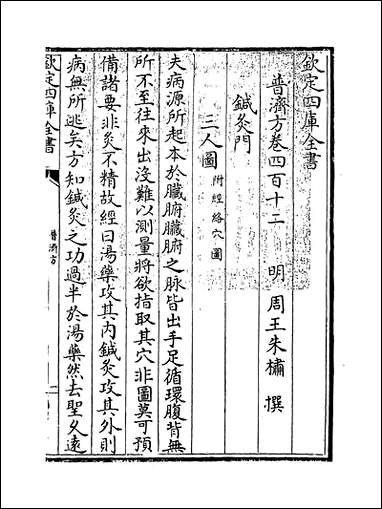 欽定四庫全書
普濟方卷四百十二
明 周王朱橚 撰
鍼灸門
三人圖附經絡穴圖
夫病源所起本於臟腑臟腑之脉皆出手足循環腹背無
所不至往來出沒難以測量將欲指取其穴非圖莫可預
備諸要非灸不精故經曰湯藥攻其内鍼灸攻其外則
病無所逃矣方知鍼灸之功過半於湯藥然去聖久遠
欽定四庫全書
普濟方